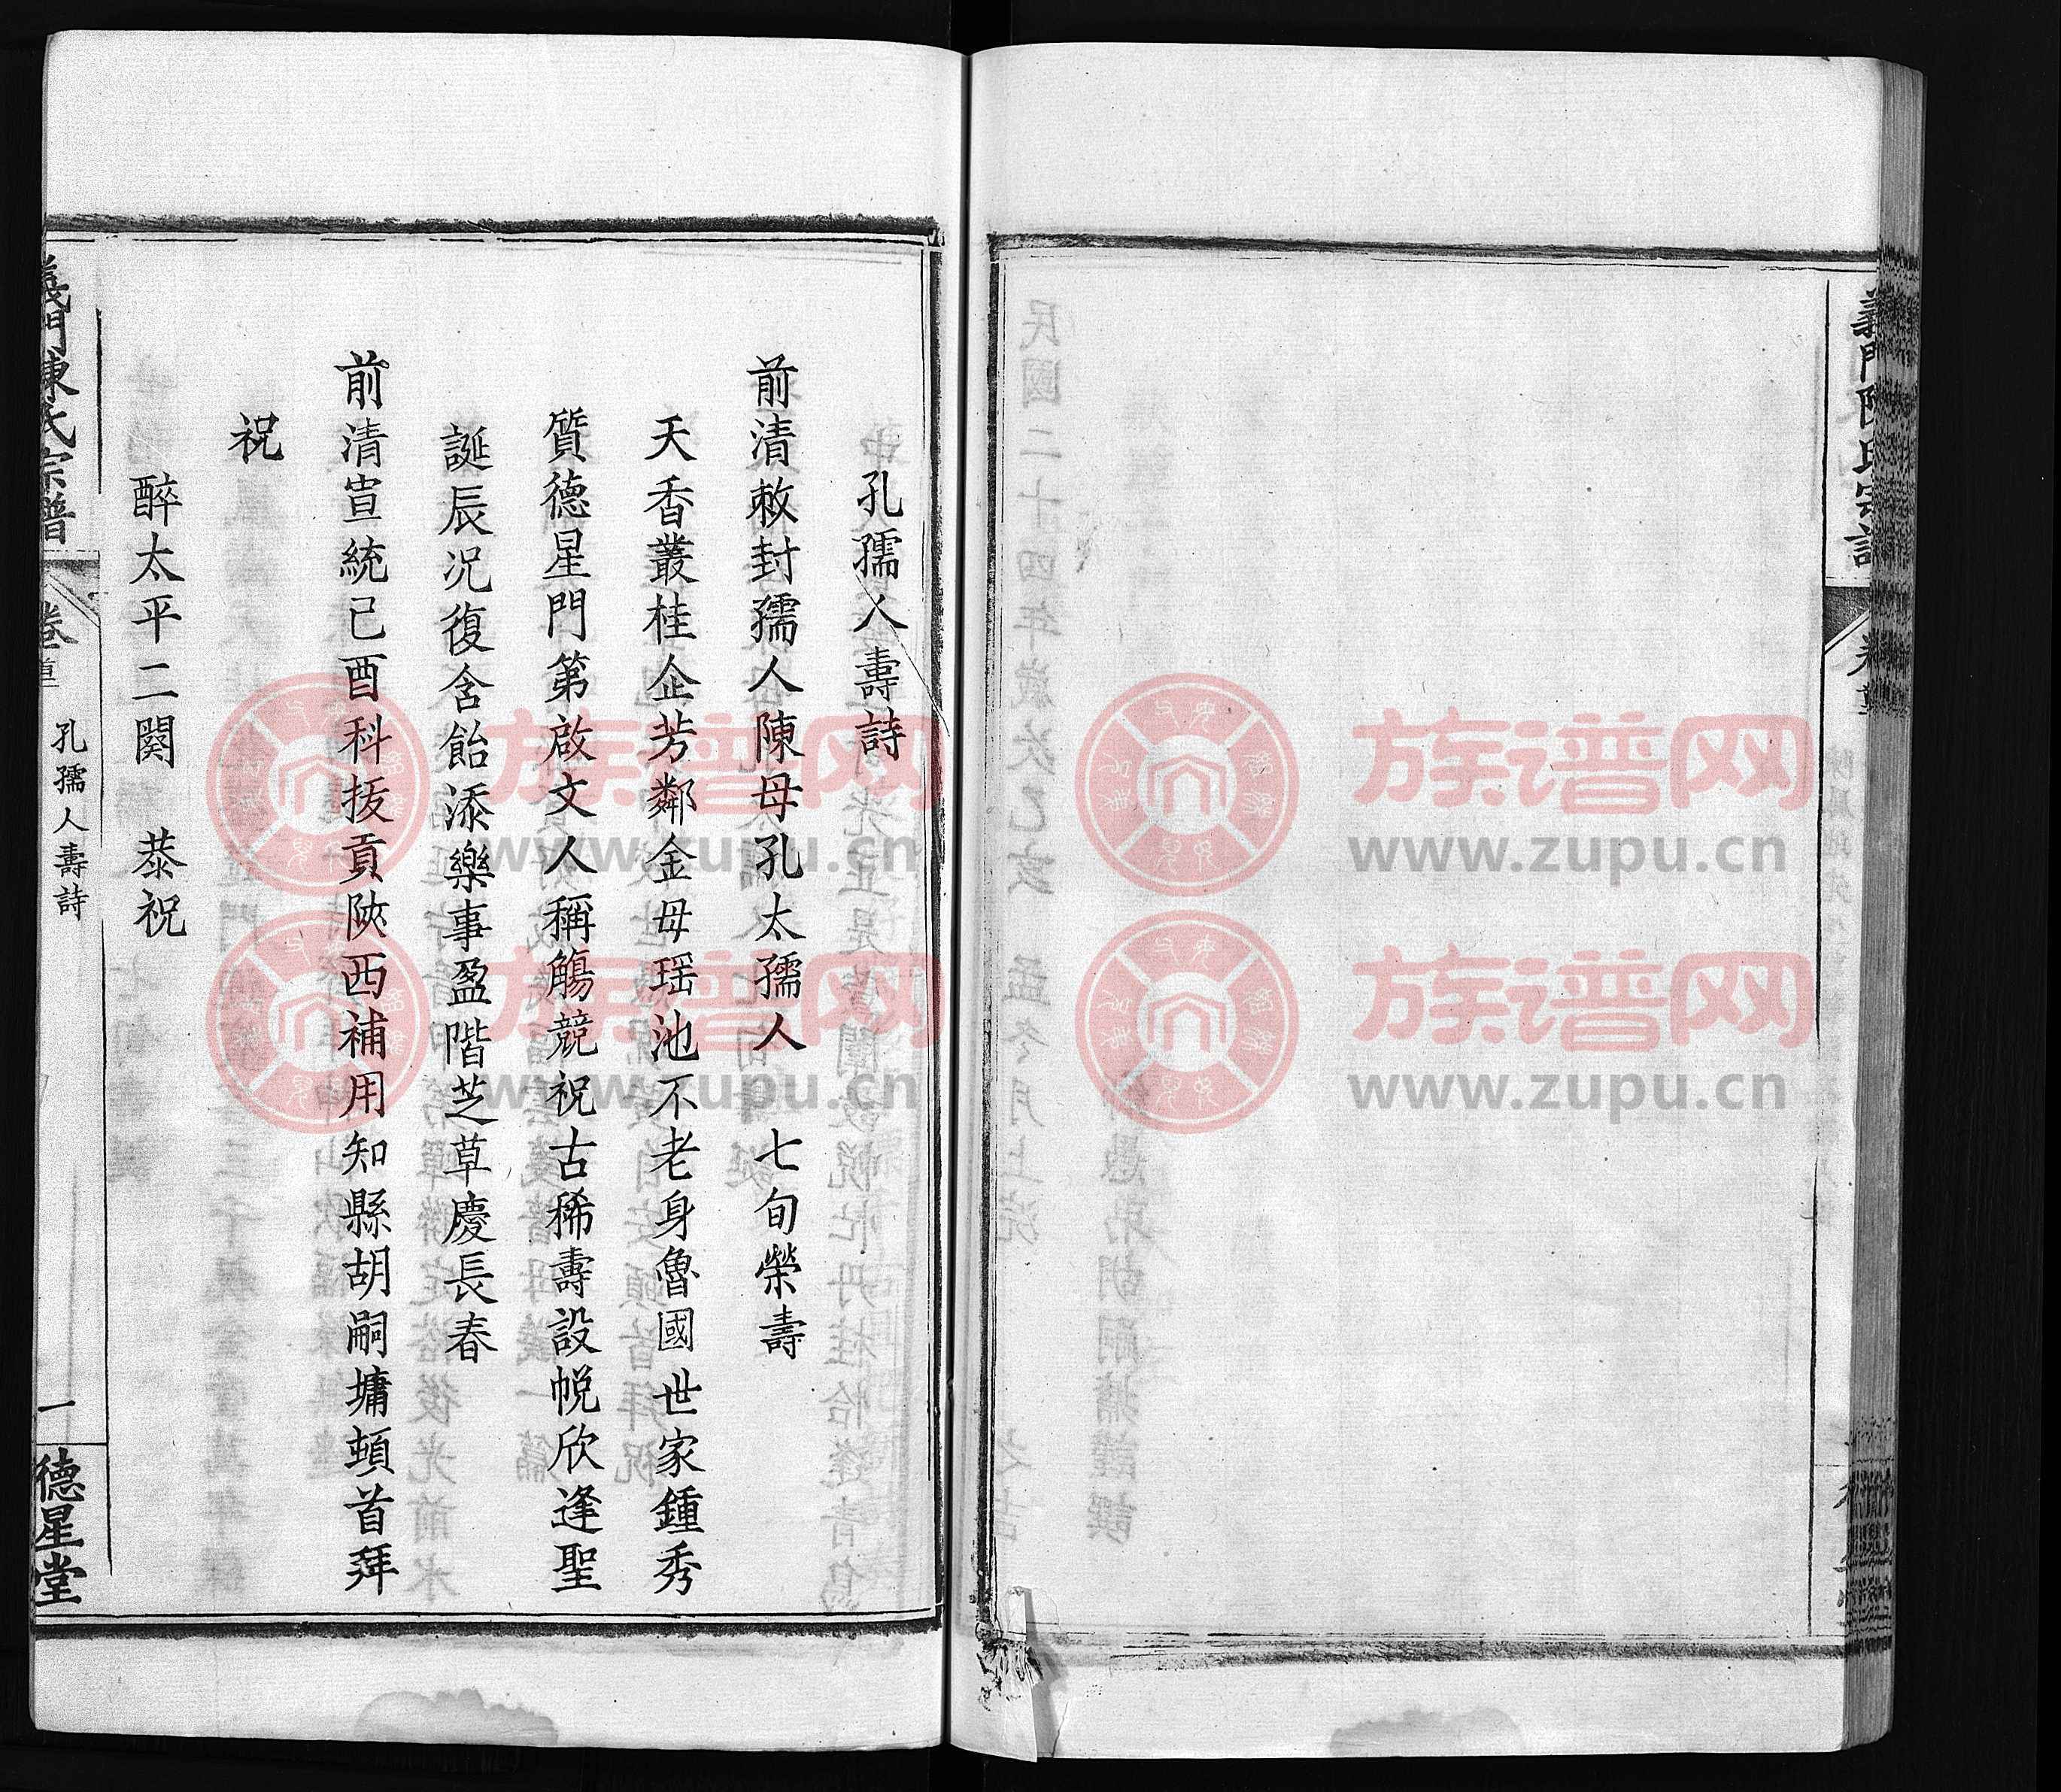 義門陳氏宗譜
卷首
孔孺人壽詩
前清敕封孺人陳母孔太孺人　七旬榮壽
天香叢桂企芳鄰金母瑶池不老身魯國世家鍾秀
質德星門第啟文人稱觴競祝古稀壽設帨欣逢聖
誕辰况復含飴添樂事盈階芝草慶長春
前清宣統己酉科拔貢陝西補用知縣胡嗣墉頓首拜
祝
醉太平二闋　恭祝
義門陳氏宗譜
卷
孔孺人壽詩
一
德星堂
族谱网
www.zupu.cn
族谱网
www.zupu.cn
族谱网
www.zupu.cn
族谱网
www.zupu.cn